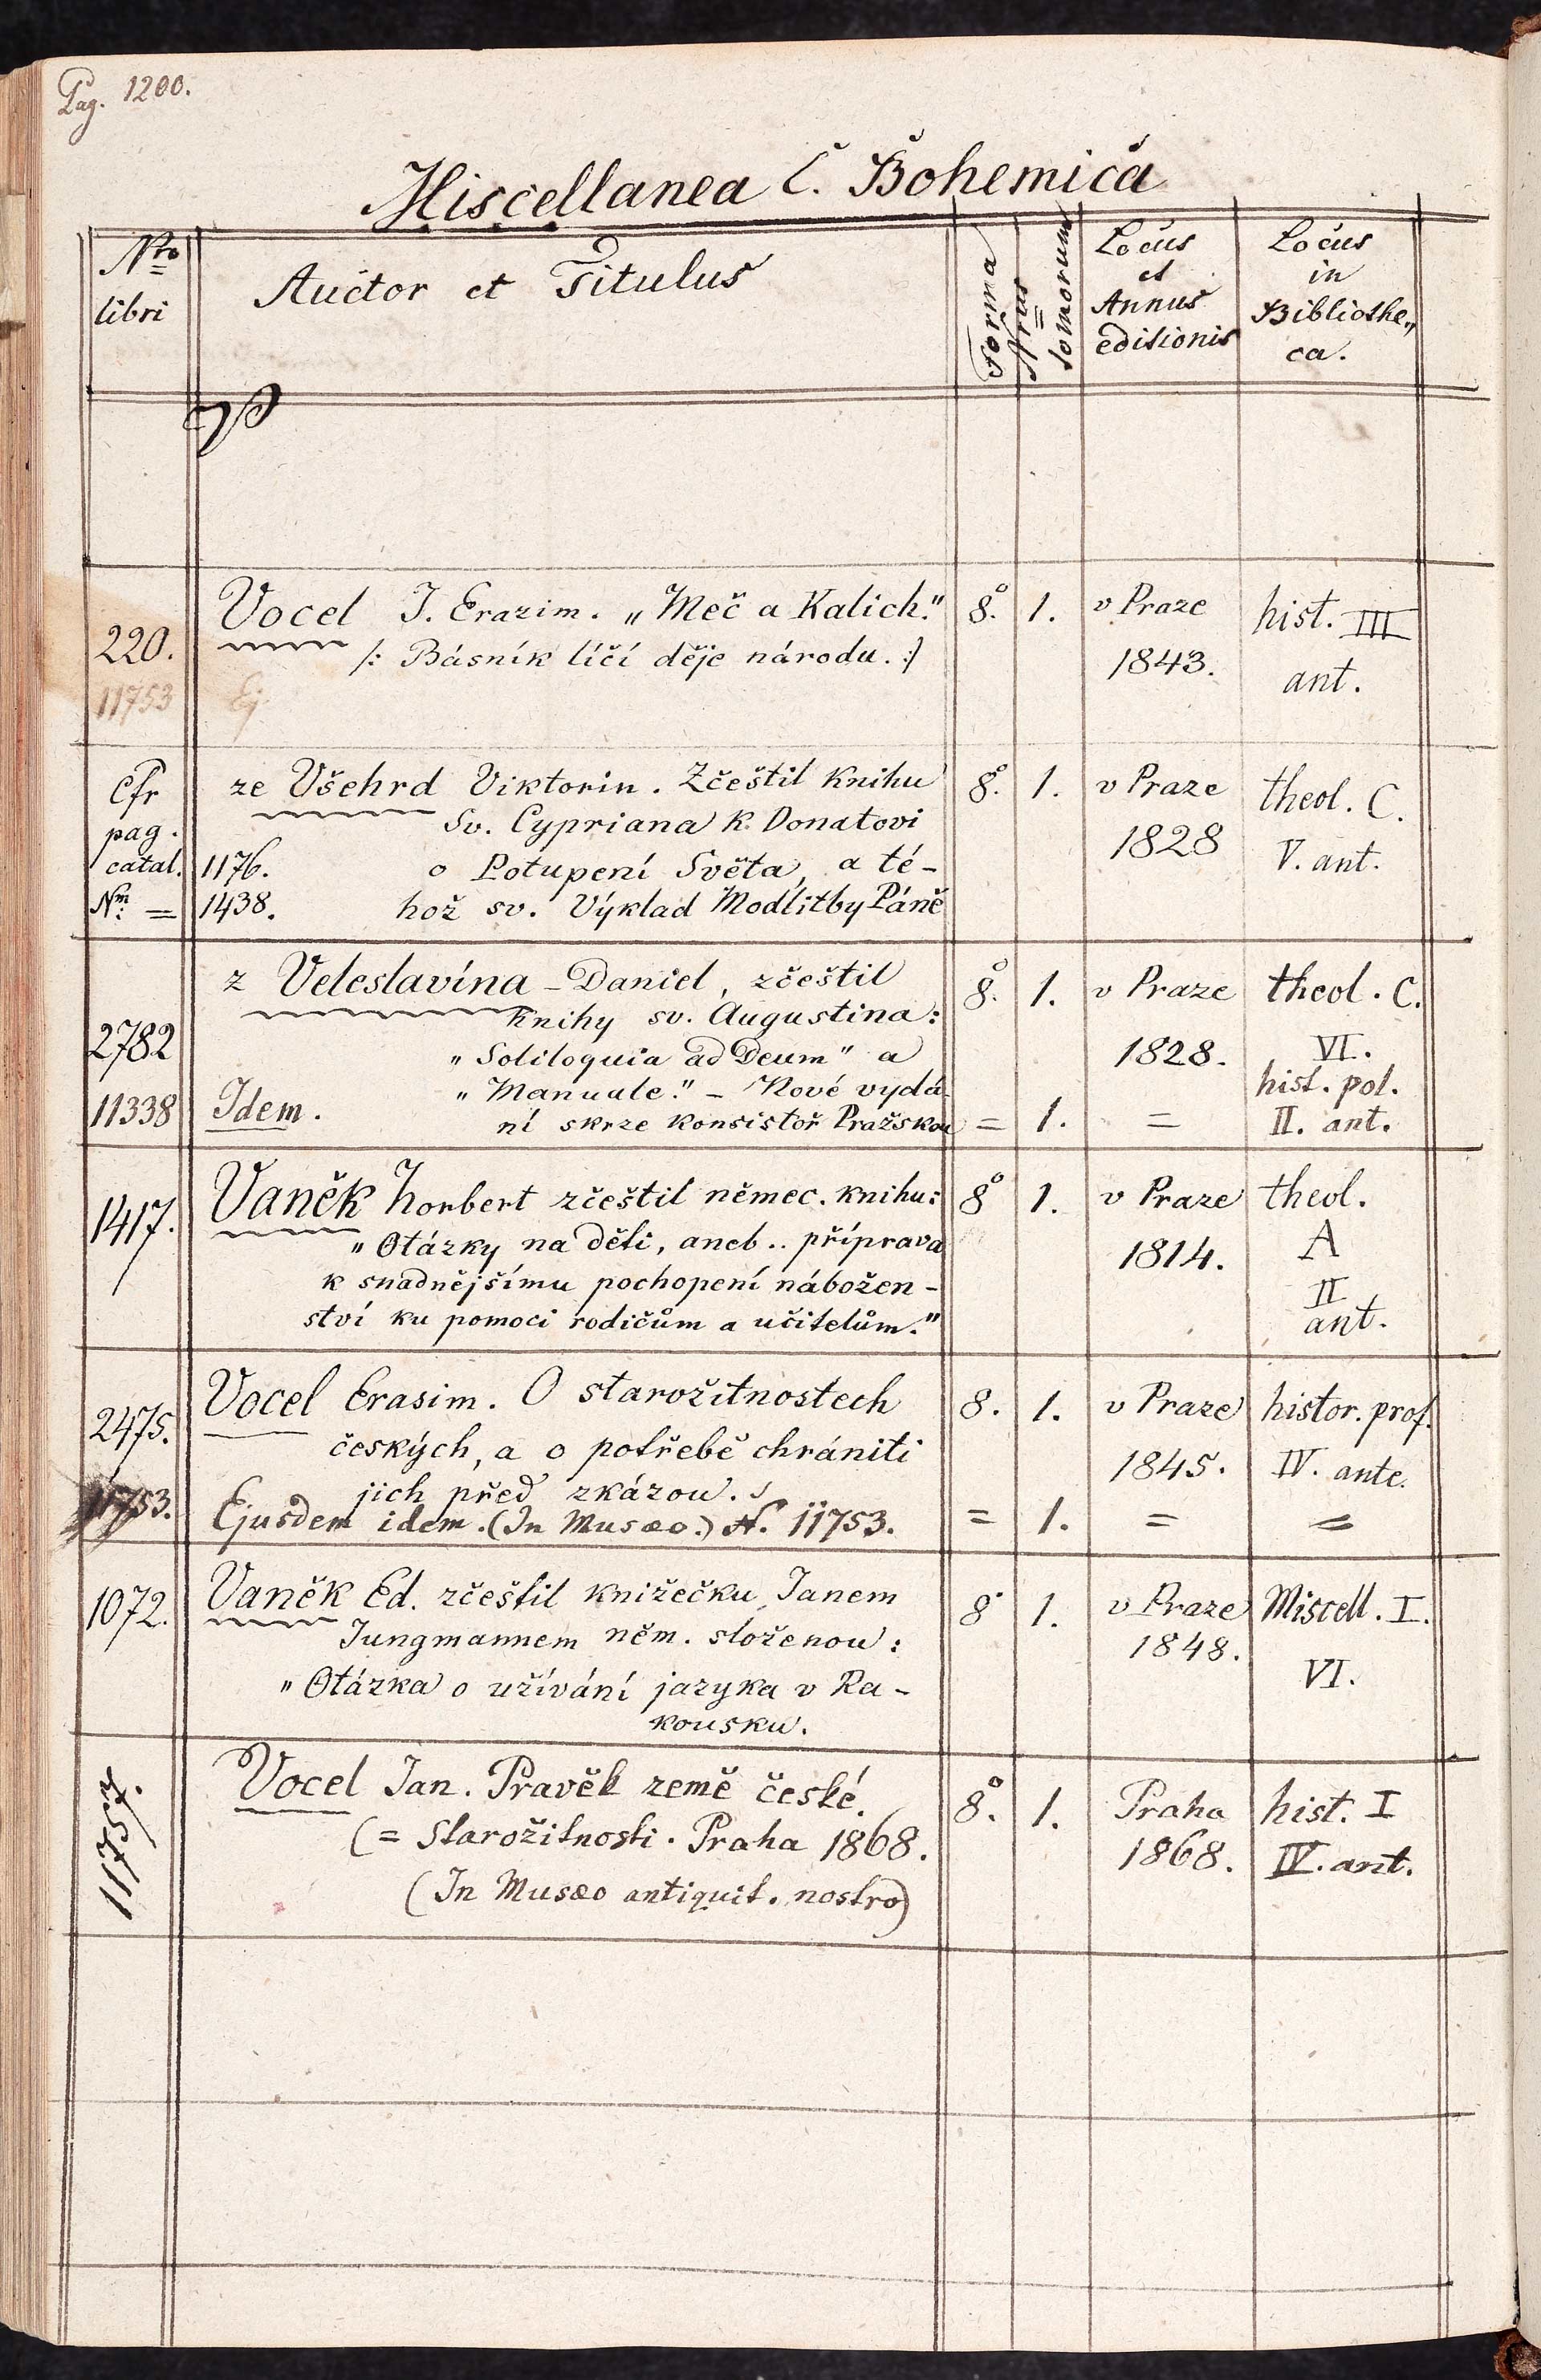 Pag. 1200.
Miscellanea C. Bohemica
Nro libri
Auctor et Titulus
Forma
Nrus tomorum
Locus et Annus editionis
Locus in Bibliothe„ ca.
220. Vocel J. Erazim. „Meč a Kalich." 8o. 1. v Praze hist. III
/: Básník líčí děje národu. :/ 1843. ant.
11753 Ej
Cfr ze Všehrd Viktorin. Zčeštil Knihu 8o. 1. v Praze theol. C.
pag. Sv. Cypriana k Donatovi 1828 V. ant.
catal. 1176. o Potupení Světa, a té-
Nm: = 1438. hož sv. Výklad Modlitby Páně
z Veleslavína - Daniel, zčeštil 8o. 1. v Praze theol. C.
Knihy sv. Augustina:
2782 „Soliloquia ad Deum" a 1828. VI.
„Manuale." - Nové vydá- hist. pol.
11338 Idem. ní skrze Konsistoř Pražskou = 1. = II. ant.
1417. Vaněk Norbert zčeštil němec. knihu: 8o 1. v Praze theol.
„Otázky na děti, aneb .. příprava 1814. A
k snadnějšímu pochopení nábožen- II
ství ku pomoci rodičům a učitelům." ant.
2475. Vocel Erasim. O starožitnostech 8. 1. v Praze histor. prof.
českých, a o potřebě chrániti 1845. IV. ante.
jich před zkázou.
11753. Ejusdem idem. (In Musæo.) N. 11753. = 1. = =
1072. Vaněk Ed. zčeštil knižečku, Janem 8 1. v Praze Miscell. I.
Jungmannem něm. složenou: 1848.
„Otázka o užívání jazyka v Ra- VI.
kousku.
11757. Vocel Jan. Pravěk země české. 8o. 1. Praha hist. I
(= Starožitnosti. Praha 1868. 1868. IV. ant.
(In Musæo antiquit. nostro)